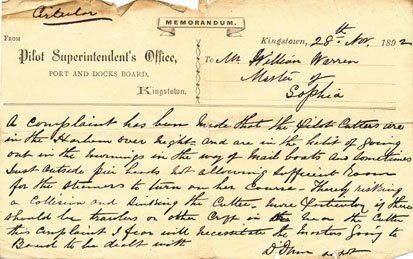 Circular
MEMORANDUM.
FROM
Pilot Superintendent's Office,
PORT AND DOCKS BOARD,
Kingstown.
Kingstown, 28th Nov. 1892
To Mr William Warren
Master of
Sophia
A complaint has been made that the Pilot Cutters are
in the Harbour over night and are in the habit of going
out in the mornings in the way of mail boats and sometimes
Just outside pier heads not allowing sufficient room
for the steamers to turn on her course - thereby risking
a Collision and sinking the Cutter, more particularly if there
should be trawlers or other craft in near the Cutter
this complaint I fear will necessitate the masters going to
Board to be dealt with